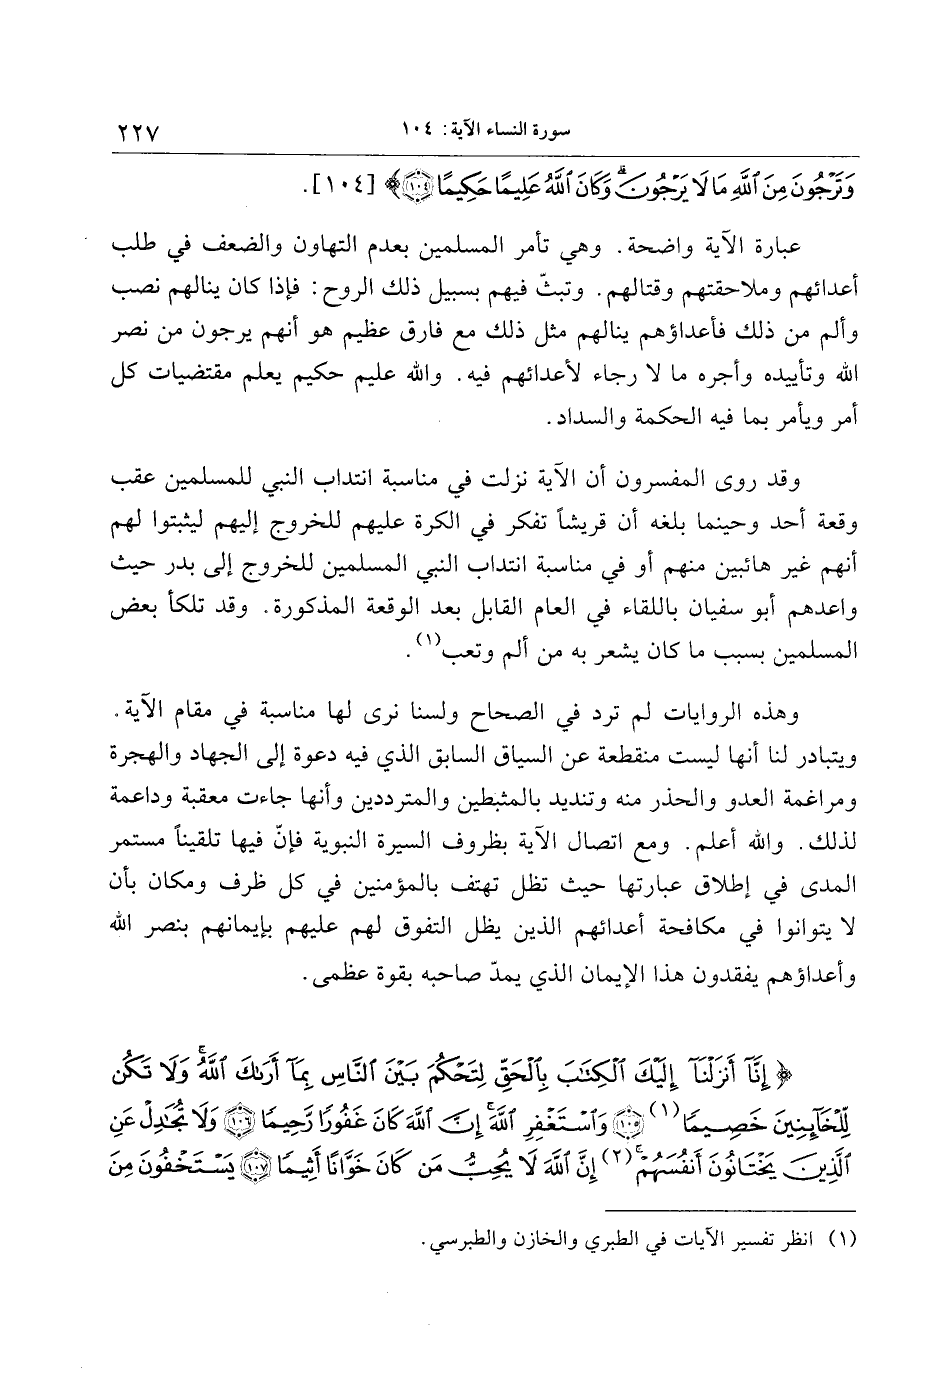 سورة النساء الآية: ١٠٤ ٢٢٧
وَتَرْجُونَ مِنَ ٱللَّهِ مَا لَا يَرْجُونَۗ وَكَانَ ٱللَّهُ عَلِيمًا حَكِيمًا ١٠٤﴾ [١٠٤].
عبارة الآية واضحة. وهي تأمر المسلمين بعدم التهاون والضعف في طلب
أعدائهم وملاحقتهم وقتالهم. وتبثّ فيهم بسبيل ذلك الروح: فإذا كان ينالهم نصب
وألم من ذلك فأعداؤهم ينالهم مثل ذلك مع فارق عظيم هو أنهم يرجون من نصر
الله وتأييده وأجره ما لا رجاء لأعدائهم فيه. والله عليم حكيم يعلم مقتضيات كل
أمر ويأمر بما فيه الحكمة والسداد.
وقد روى المفسرون أن الآية نزلت في مناسبة انتداب النبي للمسلمين عقب
وقعة أحد وحينما بلغه أن قريشاً تفكر في الكرة عليهم للخروج إليهم ليثبتوا لهم
أنهم غير هائبين منهم أو في مناسبة انتداب النبي المسلمين للخروج إلى بدر حيث
واعدهم أبو سفيان باللقاء في العام القابل بعد الوقعة المذكورة. وقد تلكأ بعض
المسلمين بسبب ما كان يشعر به من ألم وتعب(١).
وهذه الروايات لم ترد في الصحاح ولسنا نرى لها مناسبة في مقام الآية.
ويتبادر لنا أنها ليست منقطعة عن السياق السابق الذي فيه دعوة إلى الجهاد والهجرة
ومراغمة العدو والحذر منه وتنديد بالمثبطين والمترددين وأنها جاءت معقبة وداعمة
لذلك. والله أعلم. ومع اتصال الآية بظروف السيرة النبوية فإنّ فيها تلقيناً مستمر
المدى في إطلاق عبارتها حيث تظل تهتف بالمؤمنين في كل ظرف ومكان بأن
لا يتوانوا في مكافحة أعدائهم الذين يظل التفوق لهم عليهم بإيمانهم بنصر الله
وأعداؤهم يفقدون هذا الإيمان الذي يمدّ صاحبه بقوة عظمى.
﴿ إِنَّآ أَنزَلْنَآ إِلَيْكَ ٱلْكِتَٰبَ بِٱلْحَقِّ لِتَحْكُمَ بَيْنَ ٱلنَّاسِ بِمَآ أَرَىٰكَ ٱللَّهُۚ وَلَا تَكُن
لِّلْخَآئِنِينَ خَصِيمًا(١) ١٠٥ وَٱسْتَغْفِرِ ٱللَّهَۖ إِنَّ ٱللَّهَ كَانَ غَفُورًا رَّحِيمًا ١٠٦ وَلَا تُجَٰدِلْ عَنِ
ٱلَّذِينَ يَخْتَانُونَ أَنفُسَهُمْۚ(٢) إِنَّ ٱللَّهَ لَا يُحِبُّ مَن كَانَ خَوَّانًا أَثِيمًا ١٠٧ يَسْتَخْفُونَ مِنَ
(١) انظر تفسير الآيات في الطبري والخازن والطبرسي.